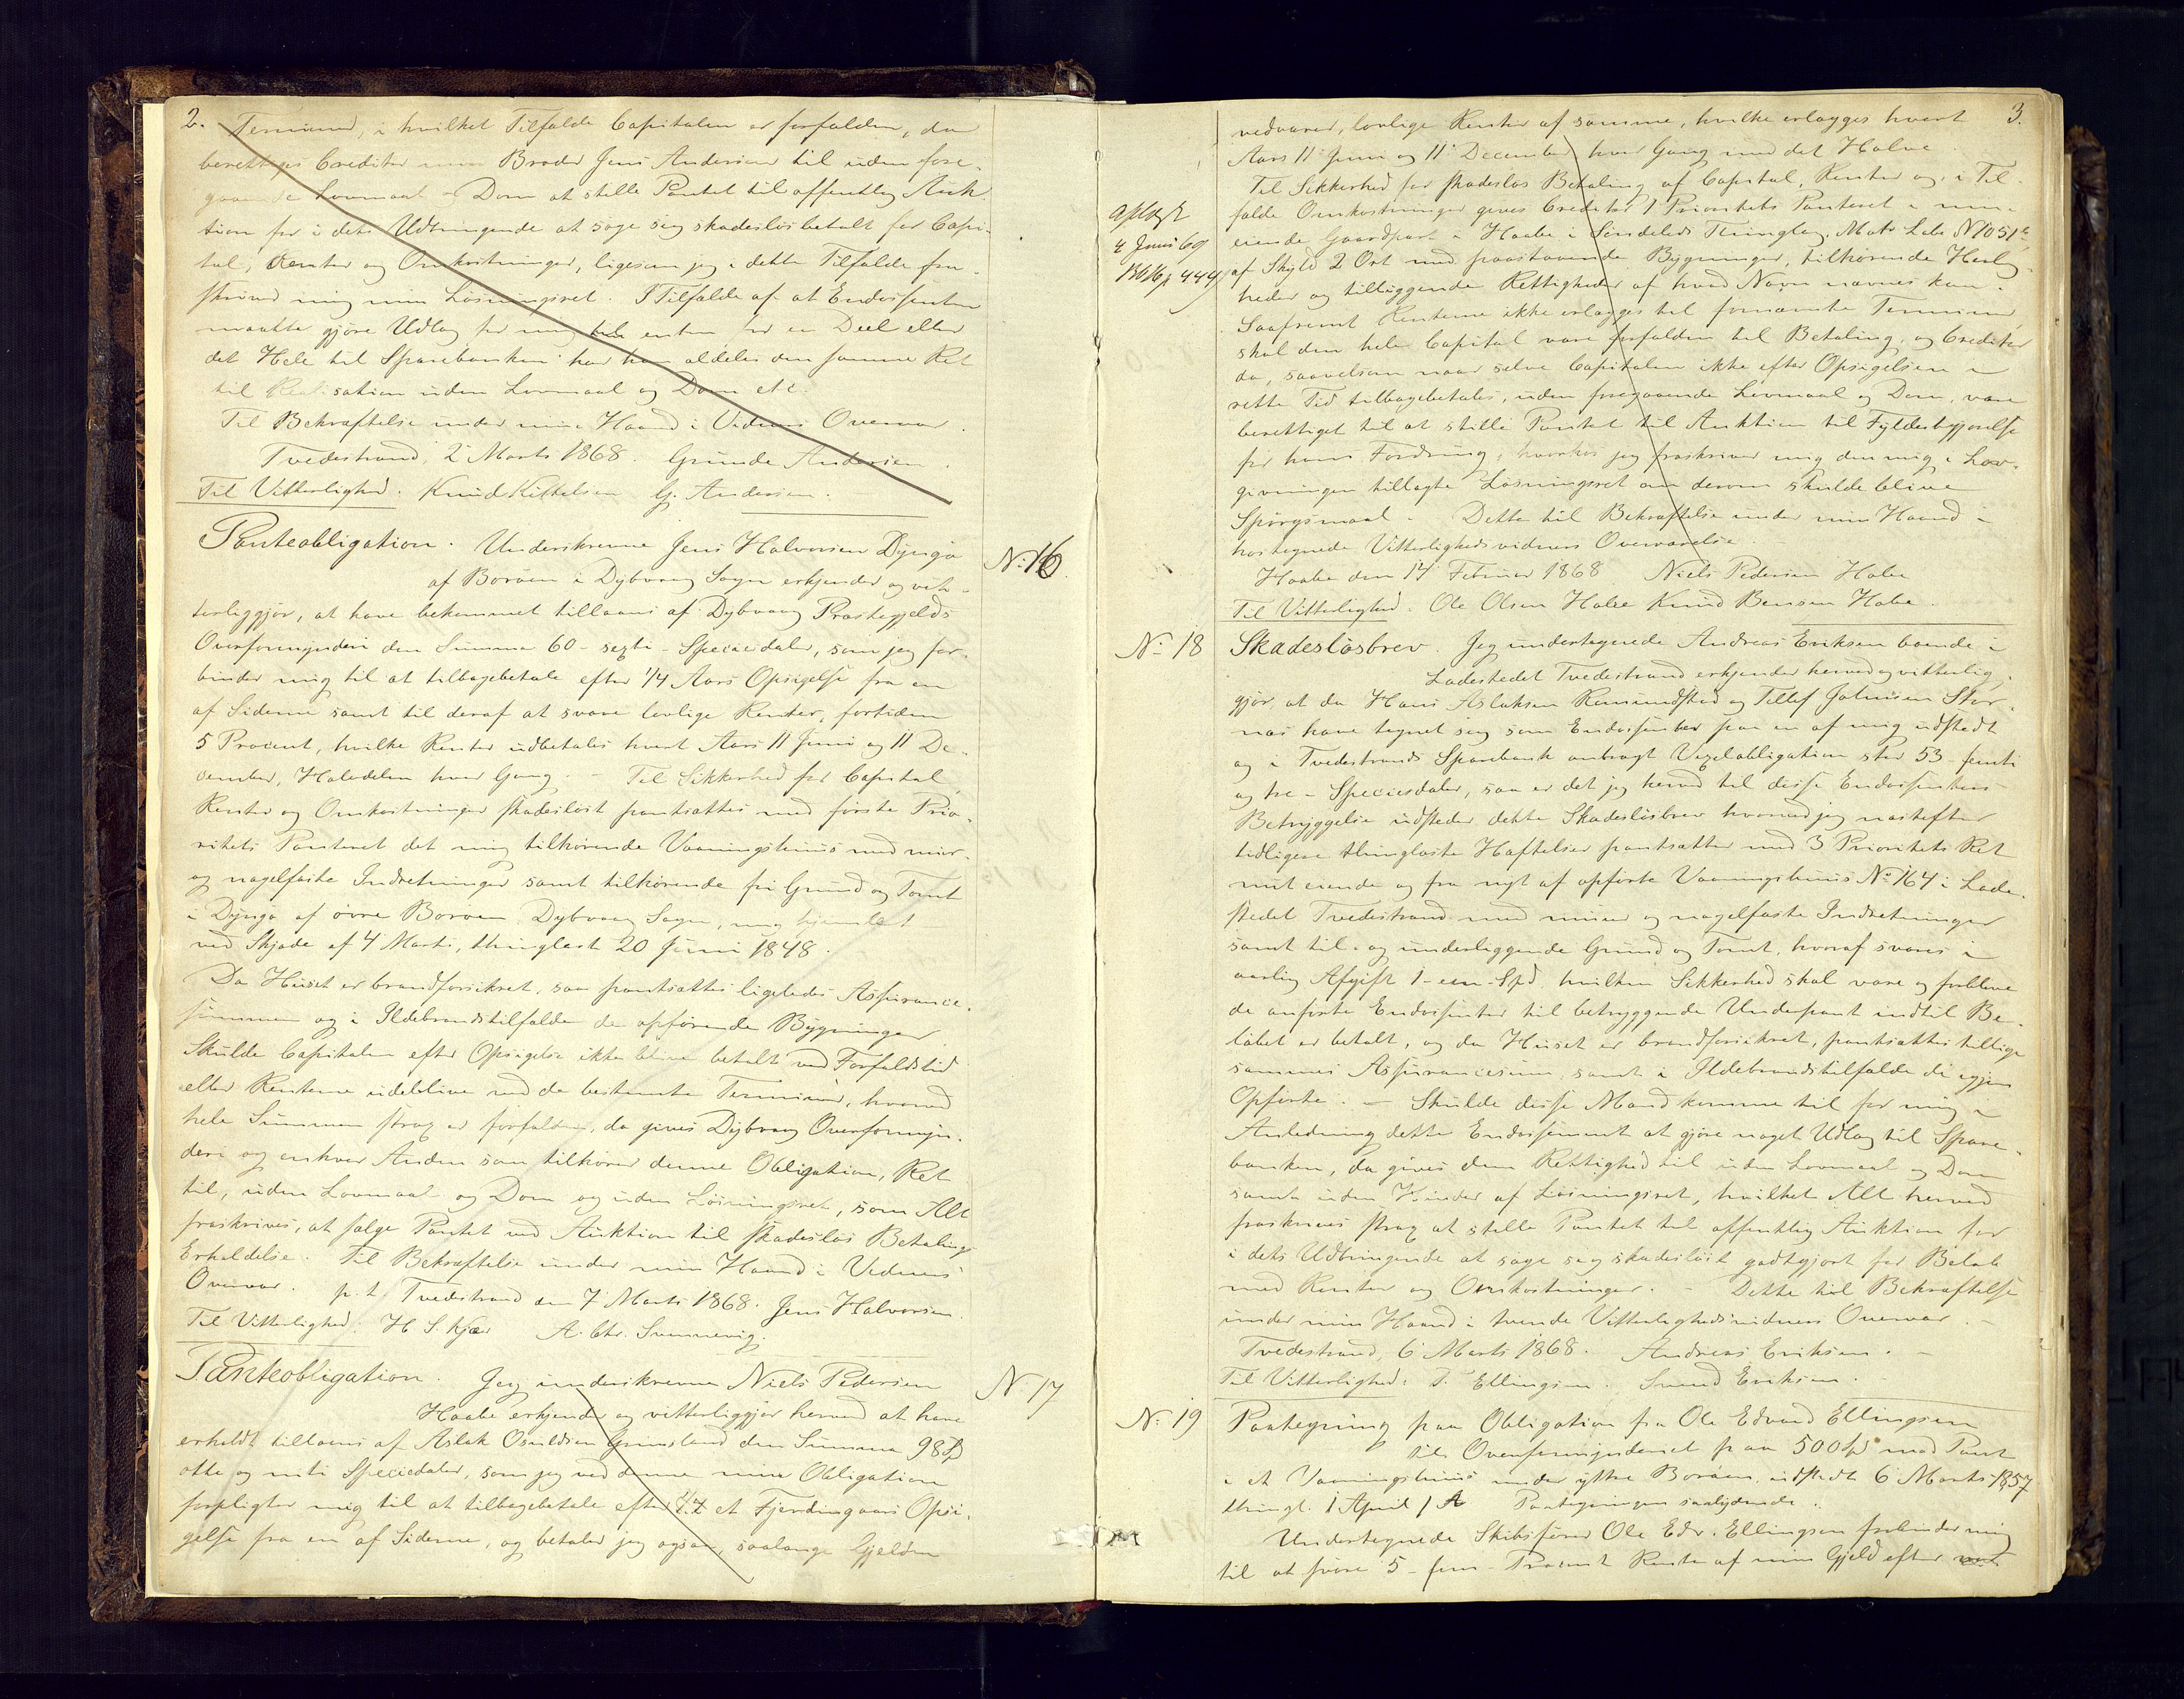 2.
Terminen, i hvilket Tilfælde Capitalen er forfalden, da
berettiges Creditor min Broder Jens Andersen til uden fore-
gaaende Lovmaal & Dom at stille Pantet til offentlig Auk
tion for i dets Udbringende at søge sig skadesløs betalt for Capi-
tal, Renter og Omkostninger, ligesom jeg i dette Tilfælde fra-
skriver mig min Løsningsret. I Tilfælde af at Endossenten
maatte gjøre Udlæg for mig enten for en Deel eller
det Hele til Sparebanken har han aldeles den samme Ret
til Realisation uden Lovmaal og Dom etc.
Til Bekræftelse under min Haand i Vidners Overvær.
Tvedestrand, 2 Marts 1868. Gunde Andersen.
Til Vitterlighed. Knud Kittelsen G. Andersen.
Panteobligation. Underskrevne Jens Halvorsen Dynga
N: 16.
af Borøen i Dybvaag Sogn erkjender og vit-
terliggjør, at have bekommet tillaans af Dybvaag Præstegjelds
Overformynderi den Summa 60 - sexti - Speciedaler, som jeg for-
binder mig til at tilbagebetale efter 1/4 Aars Opsigelse fra en
af Siderne samt til deraf at svare lovlige Renter, fortiden
5 Procent, hvilke Renter udbetales hvert Aars 11 Juni og 11 De-
cember, Halvdelen hver Gang. - Til Sikkerhed for Capital,
Renter og Omkostninger skadesløst pantsættes med første Prio-
ritets Panteret det mig tilhørende Vaaningshuus med muur-
og nagelfaste Indretninger samt tilhørende fri Grund og Tomt
i Dynga af øvre Borøen, Dybvaag Sogn, mig hjemlet
ved Skjøde af 4 Marts, thinglæst 20 Juni 1848.
Da Huset er brandforsikret, saa pantsættes ligeledes Assurance-
summen og i Ildebrandstilfælde de opførende Bygninger
Skulde Capitalen efter Opsigelse ikke blive betalt ved Forfaldstid
eller Renterne udeblive ved de bestemte Terminer, hvorved
hele Summen strax er forfalden, da gives Dybvaag Overformyn-
deri og enhver Anden som tilhører denne Obligation, Ret
til, uden Lovmaal og Dom og uden Løsningsret, som Alt
fraskrives, at sælge Pantet ved Auktion til skadesløs Betalings
Erholdelse. Til Bekræftelse under min Haand i Vidners
Overvær. p. t. Tvedestrand den 7 Marts 1868. Jens Halvorsen.
Til Vitterlighed: H. S. Kjær A. Chr. Svennevig.
Panteobligation. Jeg underskrevne Niels Pedersen
N 17
Haabe erkjender og vitterliggjør herved at have
erholdt tillaans af Aslak Osuldsen Grimsland den Summa 98 Sp
otte og niti Speciedaler, som jeg ved denne min Obligation
forpligter mig til at tilbagebetale efter et Fjerdingaars Opsi-
gelse fra en af Siderne, og betaler jeg ogsaa, saalænge Gjelden
3.
vedvarer, lovlige Renter af samme, hvilke erlægges hvert
Aars 11 Juni og 11 December hver Gang med det Halve.
Til Sikkerhed for skadesløs Betaling af Capital, Renter og i Til-
fælde Omkostninger gives Creditor 1 Prioritets Panteret i min
Aflyst
4 Juni 69
eiende Gaardpart i Haabe i Søndeleds Thinglag, Matr Løbe N 1051
af Skyld 2 Ort med paastaaende Bygninger, tilhørende Herlig-
heder og tilliggende Rettigheder af hvad Navn nævnes kan.
Saafremt Renterne ikke erlægges til fornævnte Terminer,
skal den hele Capital være forfalden til Betaling, og Creditor
da, saavelsom naar selve Capitalen ikke efter Opsigelsen i
rette Tid tilbagebetales, uden foregaaende Lovmaal og Dom, være
berettiget til at stille Pantet til Auktion til Fyldestgjørelse
for hans Fordring, hvorhos jeg fraskriver mig den mig i Lov-
givningen tillagte Løsningsret om derom skulde blive
Spørgsmaal. Dette til Bekræftelse under min Haand i
hostegnede Vitterlighedsvidners Overværelse.
Haabe den 14 Februar 1868 Niels Pedersen Habe
Til Vitterlighed. Ole Olsen Habe Knud Bensen Habe.
N: 18
Skadesløsbrev. Jeg undertegnede Andreas Eriksen boende i
Ladestedet Tvedestrand erkjender herved og vitterlig-
gjør, at da Hans Aslaksen Romundsted og Tellef Johnsen Stor-
næs have tegnet sig som Endossenter paa en af mig udstedt
og i Tvedestrands Sparebank anbragt Vexelobligation stor 53 femti
og tre - Speciesdaler, saa er det jeg herved til disse Endossenters
Betryggelse udsteder dette Skadesløsbrev hvorved jeg næstefter
tidligere thinglæste Hæftelser pantsætter med 3 Prioritets Ret
mit eiende og fra nyt af opførte Vaaningshuus No 164 i Lade-
stedet Tvedestrand med muur og nagelfaste Indretninger
samt til- og underliggende Grund og Tomt, hvoraf svares i
aarlig Afgift 1 - een - Spd, hvilken Sikkerhed skal være og forblive
de anførte Endossenter til betryggende Underpant indtil Be-
løbet er betalt, og da Huset er brandforsikret, pantsættes tillige
sammes Assurancesum, samt i Ildebrandstilfælde de igjen
Opførte. - Skulde disse Mænd komme til for mig i
Anledning dette Endossement at gjøre noget Udlæg til Spare-
banken, da gives dem Rettighed til uden Lovmaal og Dom
samt uden Hinder af Løsningsret, hvilket Alt herved
fraskrives strax at stille Pantet til offentlig Auktion for
i dets Udbringende at søge sig skadesløst godtgjort for Beløb
med Renter og Omkostninger. - Dette til Bekræftelse
under min Haand i tvende Vitterlighedsvidners Overvær. -
Tvedestrand, 6 Marts 1868. Andreas Eriksen. -
Til Vitterlighed: T. Ellingsen. Svend Eriksen.
N: 19
Paategning paa Obligation fra Ole Edvard Ellingsen
til Overformynderiet paa 500 Spd mod Pant
i et Vaaningshuus under yttre Borøen, udstedt 6 Marts 1857
thingl. 1 April s A Paategningen saalydende:
Undertegnede Skibsfører Ole Edv. Ellingsen forbinder mig
til at svare 5 - fem - Procent Rente af min Gjeld efter